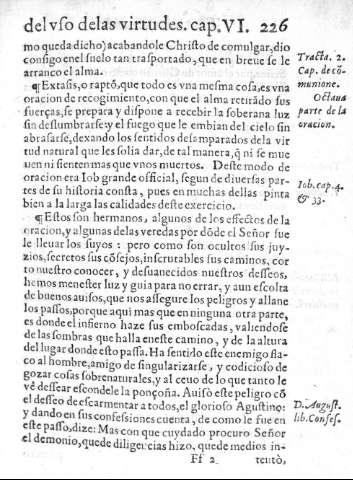 del vso de las virtudes. cap. VI. 226
mo queda dicho) acabandole Christo de comulgar, dio
consigo en el suelo tan trasportado, que en breue se le
arranco el alma.
Tracta. 2.
Cap. de co
munione.
¶Extasis, o raptõ, que todo es vna mesma cosa, es vna
oracion de recogimiento, con que el alma retirãdo sus
fuerças, se prepara y dispone a recebir la soberana luz
sin deslumbrarse, y el fuego que le embian del cielo sin
abrasarse, dexando los sentidos desamparados de la vir
tud natural que les solia dar, de tal manera, q̃ ni se mue
uen ni sienten mas que vnos muertos. Deste modo de
oracion era Iob grande official, segun de diuersas par-
tes de su historia consta, pues en muchas dellas pinta
bien a la larga las calidades deste exercicio.
Octaua
parte de la
oracion.
Iob. cap. 4.
& 33.
¶Estos son hermanos, algunos de los effectos de la
oracion, y algunas delas veredas por dõde el Señor sue
le lleuar los suyos: pero como son ocultos sus juy-
zios, secretos sus cõsejos, inscrutables sus caminos, cor
to nuestro conocer, y desuanecidos nuestros desseos,
hemos menester luz y guia para no errar, y aun escolta
de buenos auisos, que nos assegure los peligros y allane
los passos, porque aqui mas que en ninguna otra parte,
es donde el infierno haze sus emboscadas, valiendose
de las sombras que halla en este camino, y de la altura
del lugar donde esto passa. Ha sentido este enemigo fla-
co al hombre, amigo de singularizarse, y codicioso de
gozar cosas sobrenaturales, y al ceuo de lo que tanto le
vè dessear escondele la ponçoña. Auisò este peligro cõ
el desseo de escarmentar a todos, el glorioso Agustino:
y dando en sus confessiones cuenta, de como le fue en
este passo, dize: Mas con que cuydado procuro Señor
el demonio, que de diligencias hizo, que de medios in-
D. August.
lib. Confes.
Ff 2 tentò,